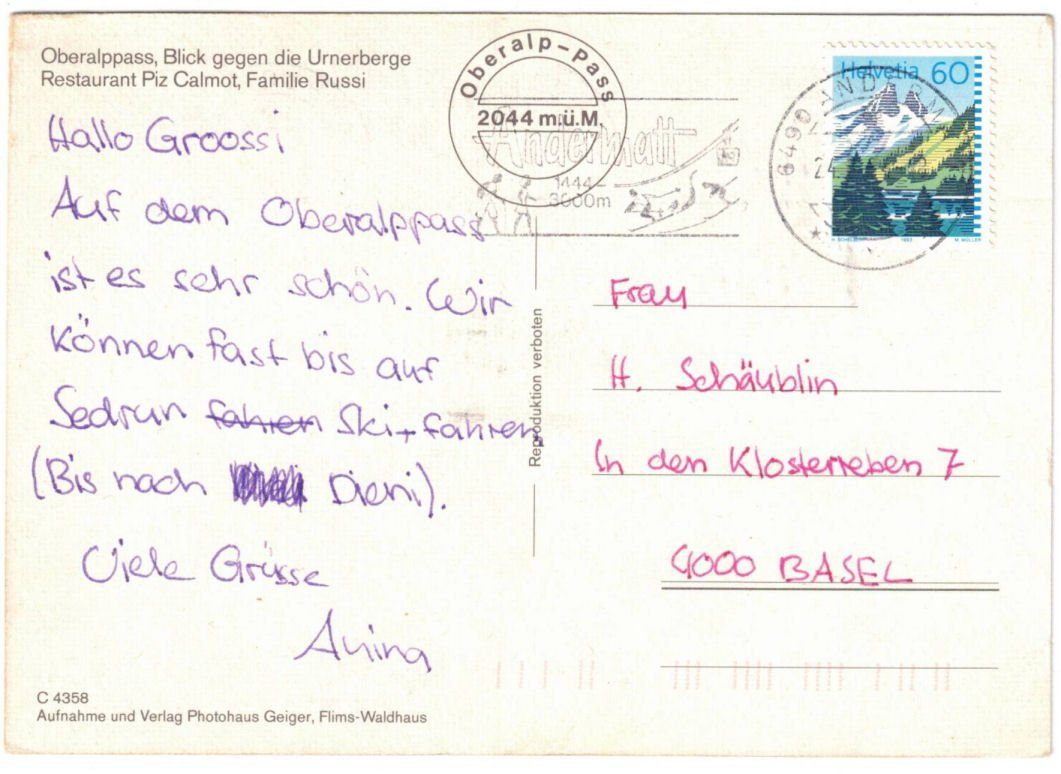 Oberalppass, Blick gegen die Urnerberge
Restaurant Piz Calmot, Familie Russi
Oberalp-Pass
2044 m.ü.M.
Andermatt
1444–
3000m
Helvetia 60
6490 ANDERM
24
1993
Hallo Groossi
Auf dem Oberalppass
ist es sehr schön. Wir
können fast bis auf
Sedrun fahren Ski fahren
(Bis nach Dieni).
Viele Grüsse
Anina
Reproduktion verboten
Frau
H. Schäublin
In den Klosterreben 7
4000 BASEL
C 4358
Aufnahme und Verlag Photohaus Geiger, Flims-Waldhaus